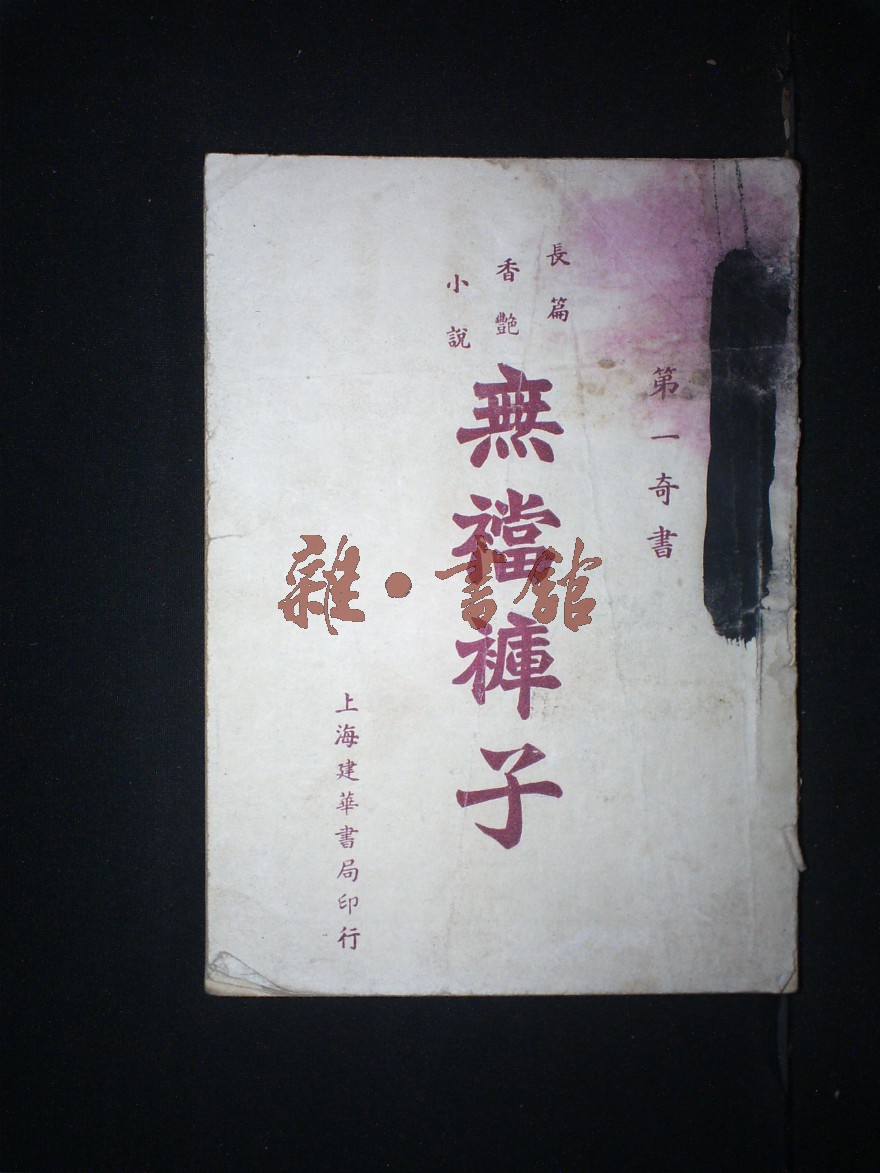 第一奇書
長篇
香艷
小說
無襠褲子
上海建華書局印行
雜·書館